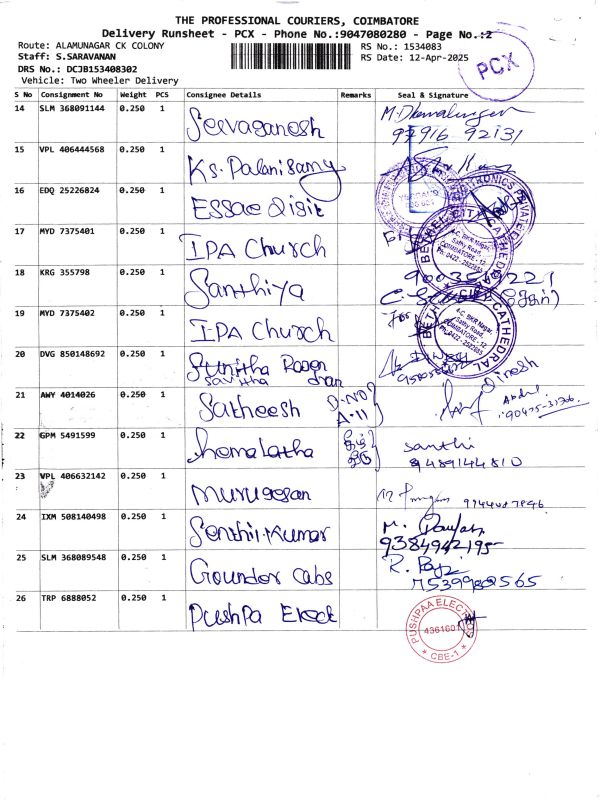 THE PROFESSIONAL COURIERS, COIMBATORE
Delivery Runsheet - PCX - Phone No.:9047080280 - Page No.:2
Route: ALAMUNAGAR CK COLONY
RS No.: 1534083
Staff: S.SARAVANAN
RS Date: 12-Apr-2025
DRS No.: DCJB153408302
Vehicle: Two Wheeler Delivery
PCX
S No Consignment No Weight PCS Consignee Details Remarks Seal & Signature
14 SLM 368091144 0.250 1 Selvaganesh
97916 92131
15 VPL 406444568 0.250 1 Ks. Palanisamy
16 EDQ 25226824 0.250 1 Essae Digit
17 MYD 7375401 0.250 1 IPA Church
BETHEL CATHEDRAL
4-C, BKR Nagar,
Sathy Road,
COIMBATORE - 12
18 KRG 355798 0.250 1 Santhiya
19 MYD 7375402 0.250 1 IPA Church
For
BETHEL CATHEDRAL
4-C, BKR Nagar,
Sathy Road,
COIMBATORE - 12
20 DVG 850148692 0.250 1 Sunitha
Savitha
Dinesh
21 AWY 4014026 0.250 1 Satheesh D-NO A-11
Abdul
22 GPM 5491599 0.250 1 Hemalatha
Santhi
9489144810
23 VPL 406632142 0.250 1 Murugesan
24 IXM 508140498 0.250 1 Senthil-Kumar
9384942195
25 SLM 368089548 0.250 1 Gounder Cabs
R.
7539982565
26 TRP 6888052 0.250 1 Pushpa Elect
PUSHPAA ELECTRO
4361601
CBE-1